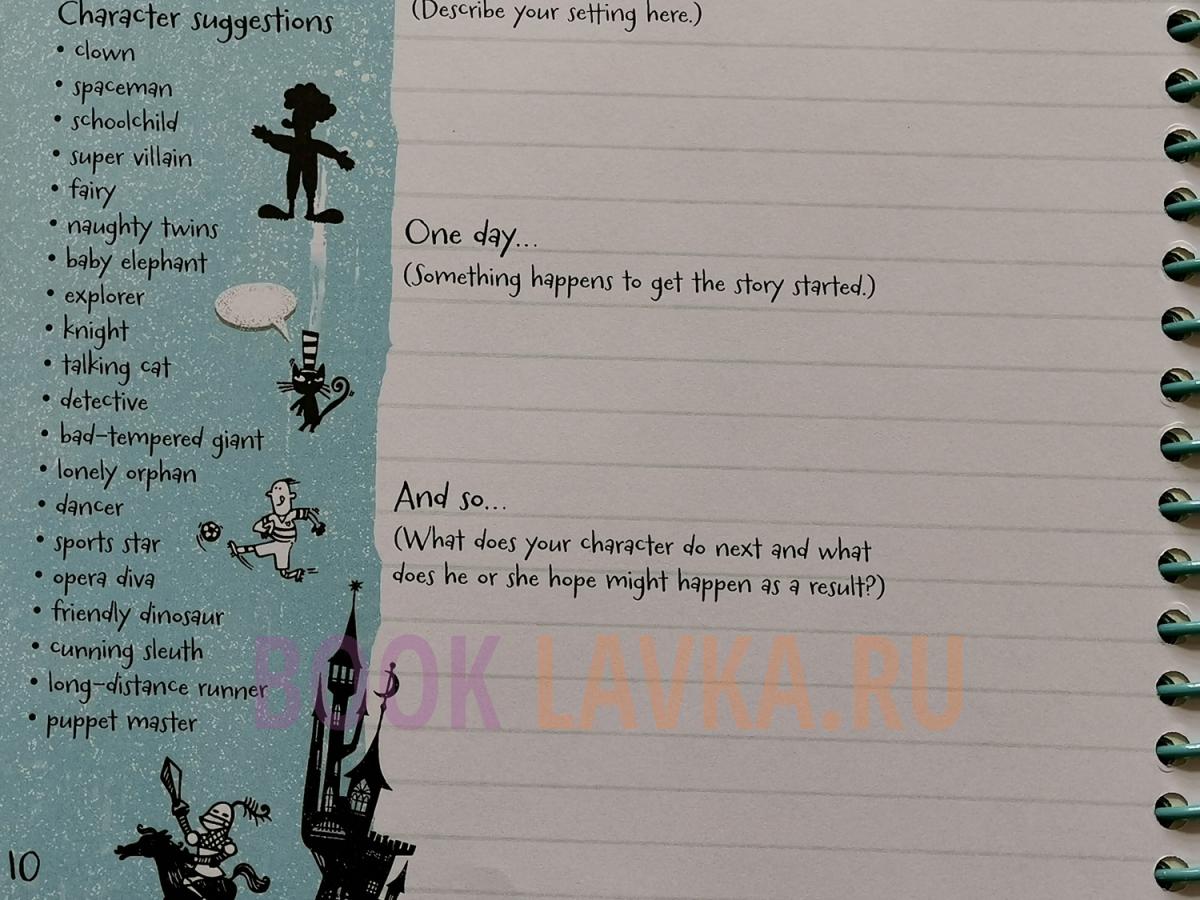 Character suggestions
• clown
• spaceman
• schoolchild
• super villain
• fairy
• naughty twins
• baby elephant
• explorer
• knight
• talking cat
• detective
• bad-tempered giant
• lonely orphan
• dancer
• sports star
• opera diva
• friendly dinosaur
• cunning sleuth
• long-distance runner
• puppet master
10
(Describe your setting here.)
One day...
(Something happens to get the story started.)
And so...
(What does your character do next and what
does he or she hope might happen as a result?)
BOOK LAVKA.RU